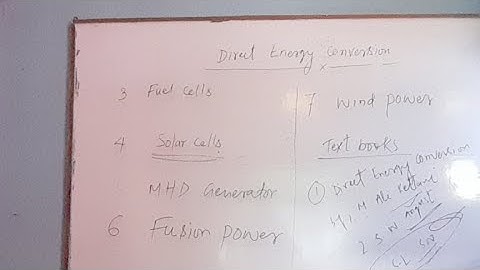 Direct Energy Conversion
3 Fuel Cells
4 Solar Cells
MHD Generator
6 Fusion power
7 Wind power
Text books
① Direct Energy conversion
2 S W Angrist